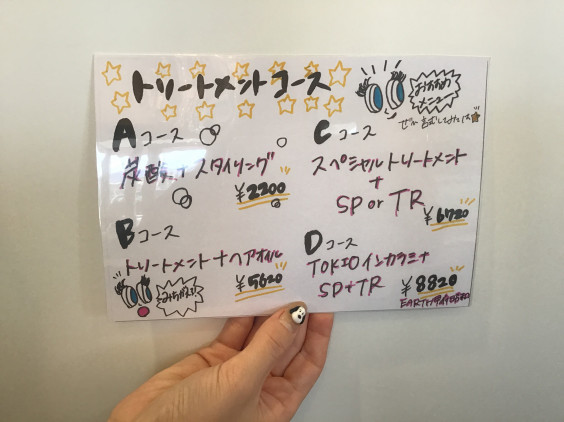 トリートメントコース
おすすめ
メニュー
Aコース
炭酸+スタイリング
¥2200
Cコース
スペシャルトリートメント
+
SP or TR
¥6720
Bコース
トリートメント+ヘアオイル
¥5620
Dコース
TOKIOインカラミ+
SP+TR
¥8820